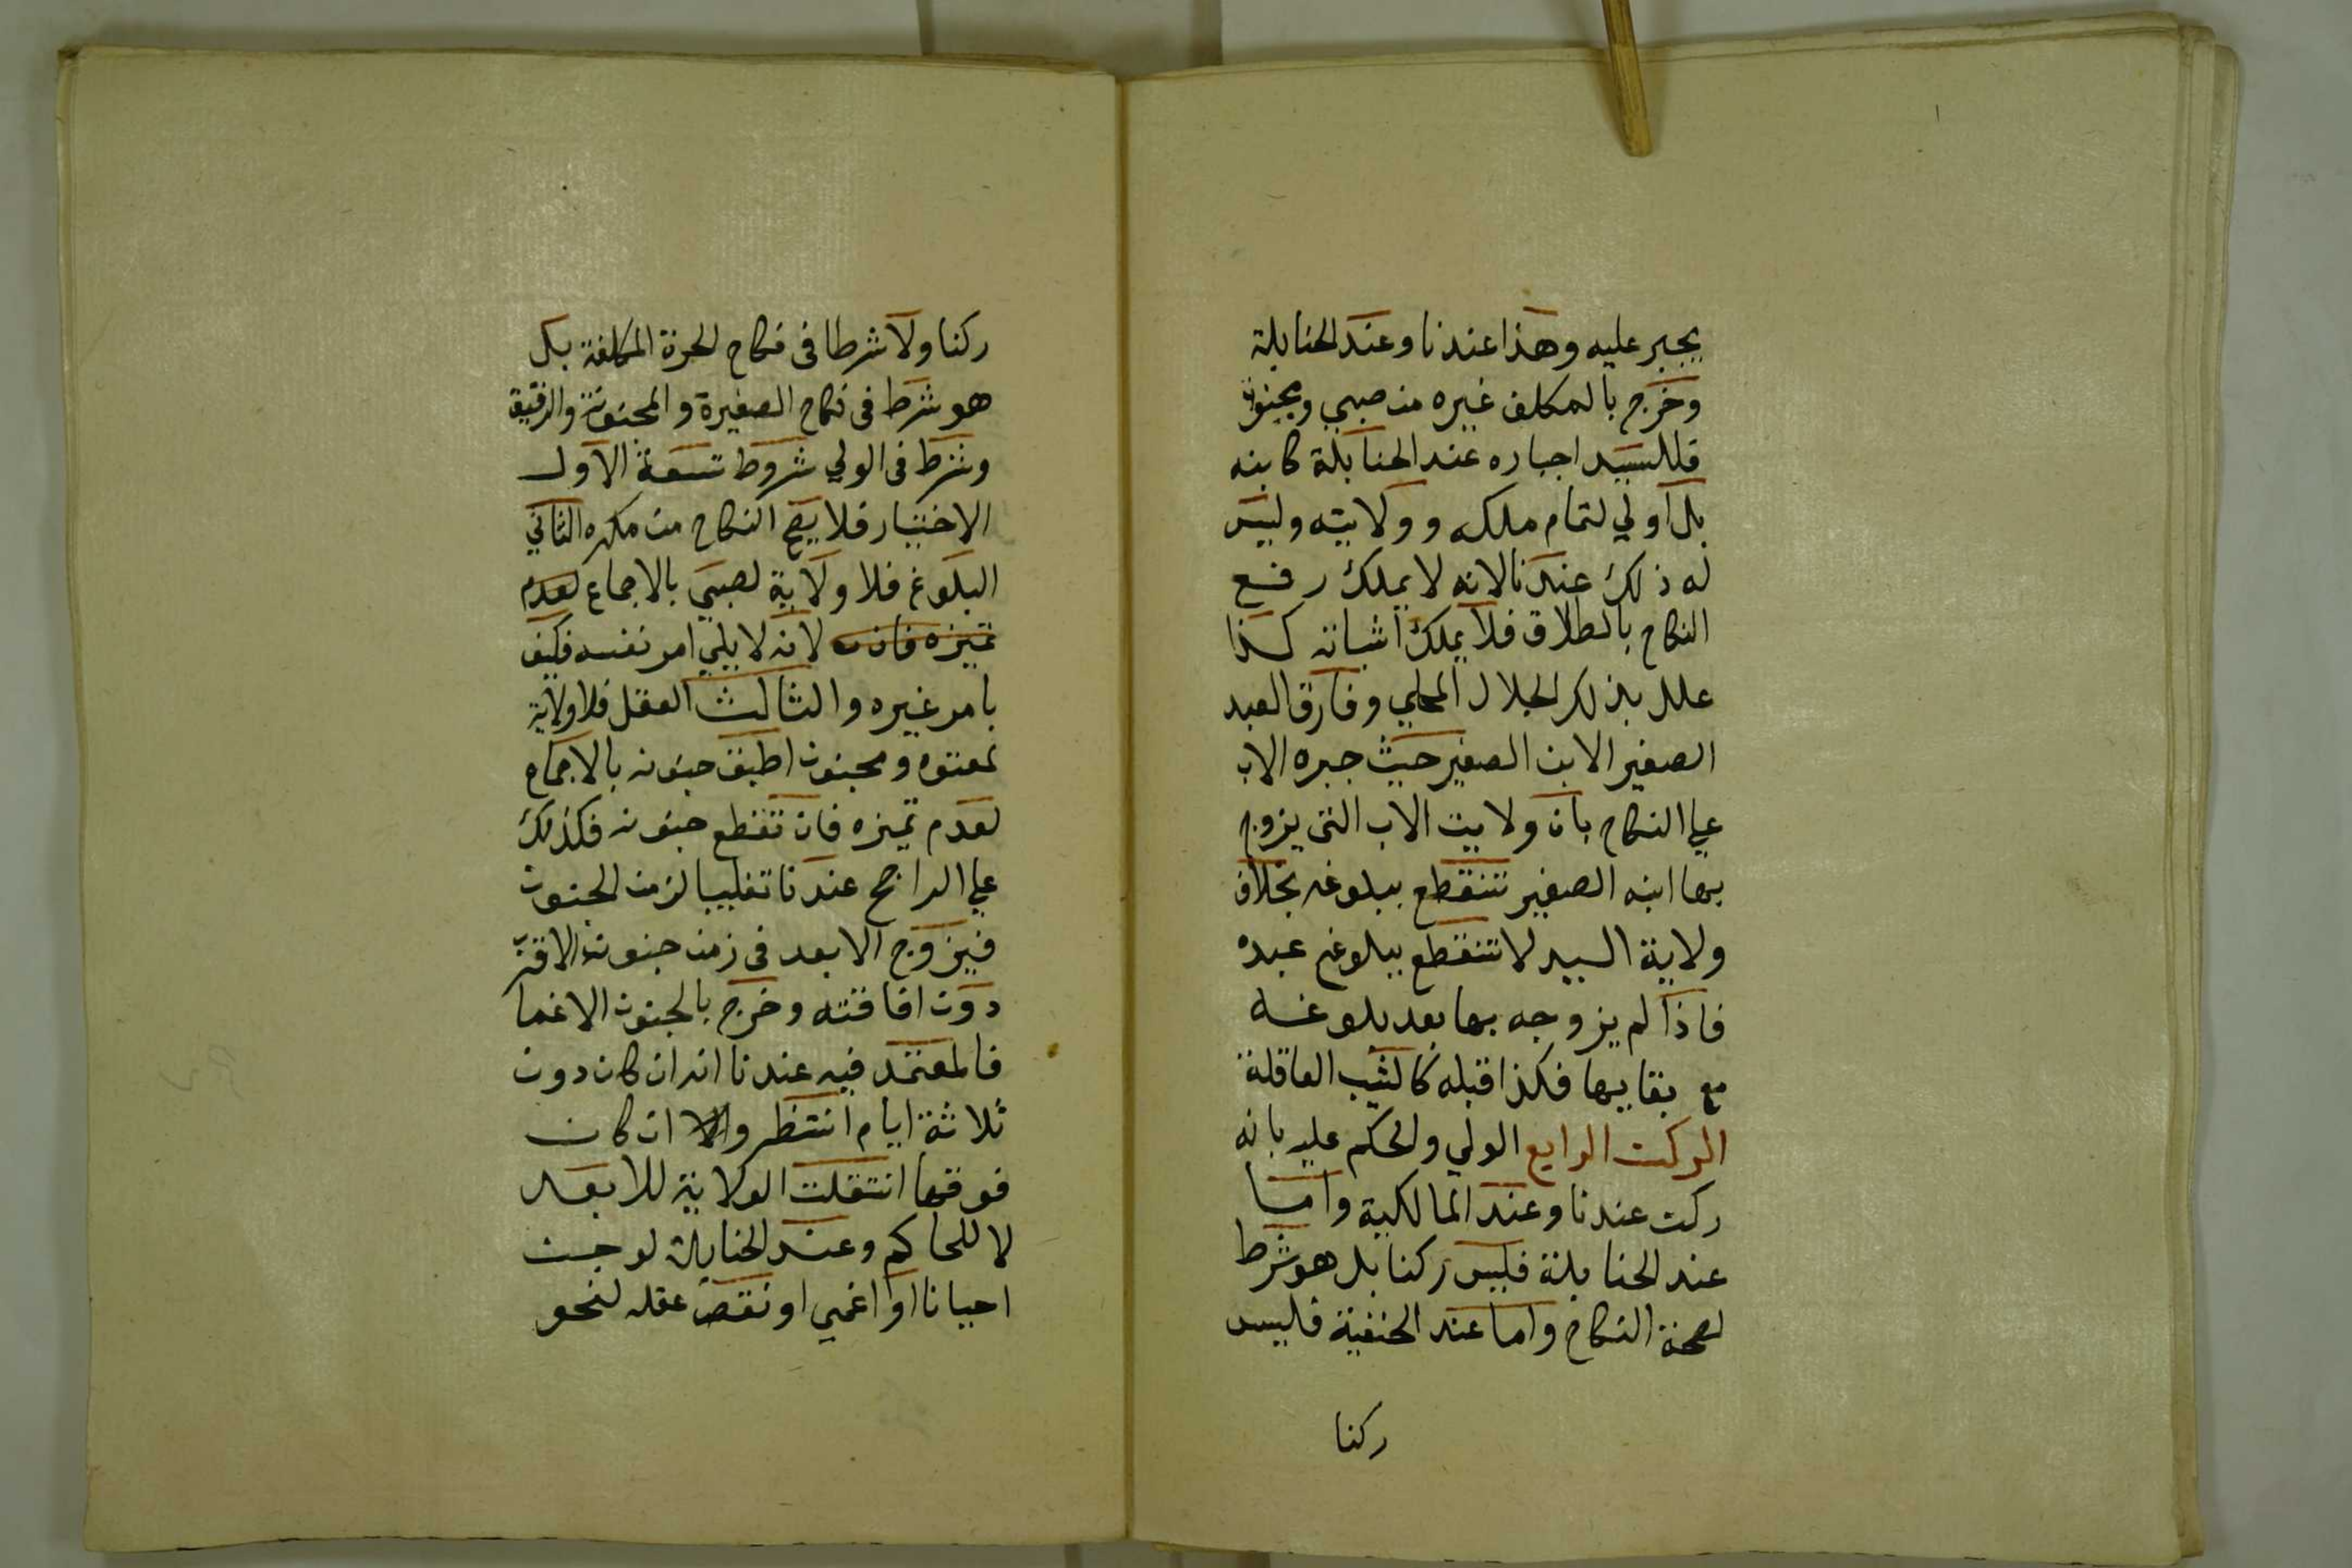 يجبر عليه وهذا عندنا وعند الحنابلة
وخرج بالمكلف غيره من صبي ومجنون
فللسيد اجباره عند الحنابلة كابنه
بل اولي لتمام ملكه وولايته وليس
له ذلك عندنا لانه لا يملك رفع
النكاح بالطلاق فلا يملك اثباته كذا
علل بذلك الجلال المحلي وفارق العبد
الصغير الابن الصغير حيث جبره الاب
علي النكاح بان ولايت الاب التى يزوج
بها ابنه الصغير تنقطع ببلوغه بخلاف
ولاية السيد لا تنقطع ببلوغ عبده
فاذا لم يزوجه بها بعد بلوغه
مع بقايها فكذا قبله كالثيب العاقلة
الركن الرابع الولي والحكم عليه بانه
ركن عندنا وعند المالكية واما
عند الحنابلة فليس ركنا بل هو شرط
لصحة النكاح واما عند الحنفية فليس
ركنا
ركنا ولا شرطا فى نكاح الحرة المكلفة بل
هو شرط فى نكاح الصغيرة والمجنونة والرقيق
وشرط فى الولي شروط تسعة الاول
الاختيار فلا يصح النكاح من مكره الثاني
البلوغ فلا ولاية لصبي بالاجماع لعدم
تميزه فانه لانه لا يلي امر نفسه فكيف
بامر غيره والثالث العقل فلا ولاية
لمعتوه ومجنون اطبق جنونه بالاجماع
لعدم تميزه فان تقطع جنونه فكذلك
علي الراجح عندنا تغليبا لزمن الجنون
فيزوج الابعد فى زمن جنون الاقرب
دون افاقته وخرج بالجنون الاغما
فالمعتمد فيه عندنا انه ان كان دون
ثلاثة ايام انتظر والا ان كان
فوقها انتقلت الولاية للابعد
لا للحاكم وعند الحنابلة لو جن
احيانا او اغمي او نقص عقله لنحو